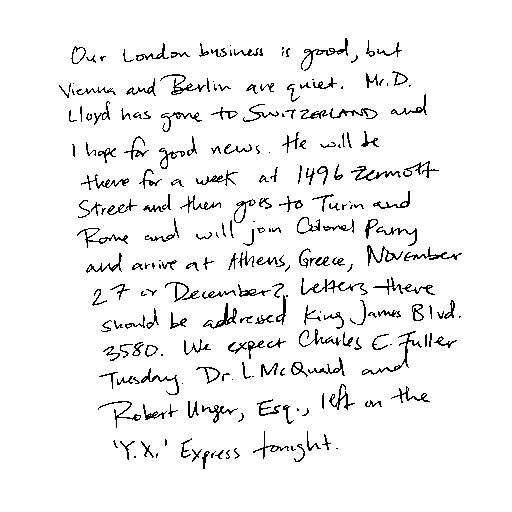 Our London business is good, but
Vienna and Berlin are quiet. Mr. D.
Lloyd has gone to SWITZERLAND and
I hope for good news. He will be
there for a week at 1496 Zermott
Street and then goes to Turin and
Rome and will join Colonel Parry
and arrive at Athens, Greece, November
27 or December 2. Letters there
should be addressed King James Blvd.
3580. We expect Charles E. Fuller
Tuesday. Dr. L McQuaid and
Robert Unger, Esq., left on the
'Y.X.' Express tonight.